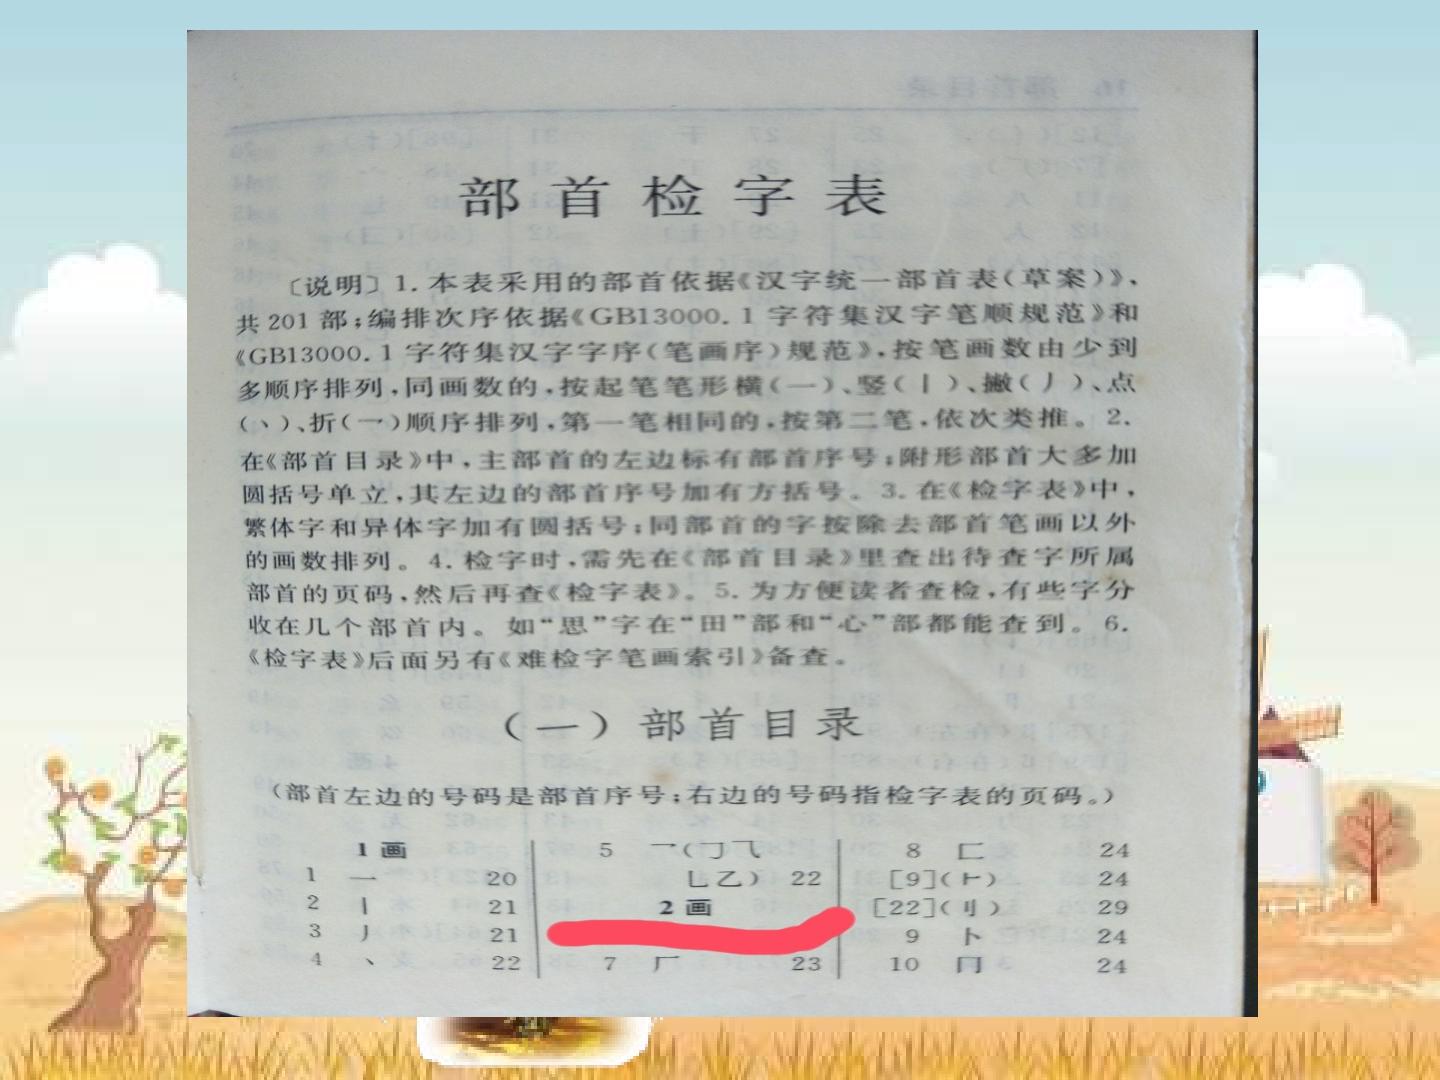 部首检字表
〔说明〕1.本表采用的部首依据《汉字统一部首表(草案)》,
共201部;编排次序依据《GB13000.1字符集汉字笔顺规范》和
《GB13000.1字符集汉字字序(笔画序)规范》,按笔画数由少到
多顺序排列,同画数的,按起笔笔形横(一)、竖(丨)、撇(丿)、点
(丶)、折(乛)顺序排列,第一笔相同的,按第二笔,依次类推。2.
在《部首目录》中,主部首的左边标有部首序号;附形部首大多加
圆括号单立,其左边的部首序号加有方括号。3.在《检字表》中,
繁体字和异体字加有圆括号;同部首的字按除去部首笔画以外
的画数排列。4.检字时,需先在《部首目录》里查出待查字所属
部首的页码,然后再查《检字表》。5.为方便读者查检,有些字分
收在几个部首内。如“思”字在“田”部和“心”部都能查到。6.
《检字表》后面另有《难检字笔画索引》备查。
(一)部首目录
(部首左边的号码是部首序号;右边的号码指检字表的页码。)
1画
1 一 20
2 丨 21
3 丿 21
4 丶 22
5 乛(𠃌⺄
乚乙) 22
2画
7 厂 23
8 匚 24
[9](⺊) 24
[22](刂) 29
9 卜 24
10 冂 24